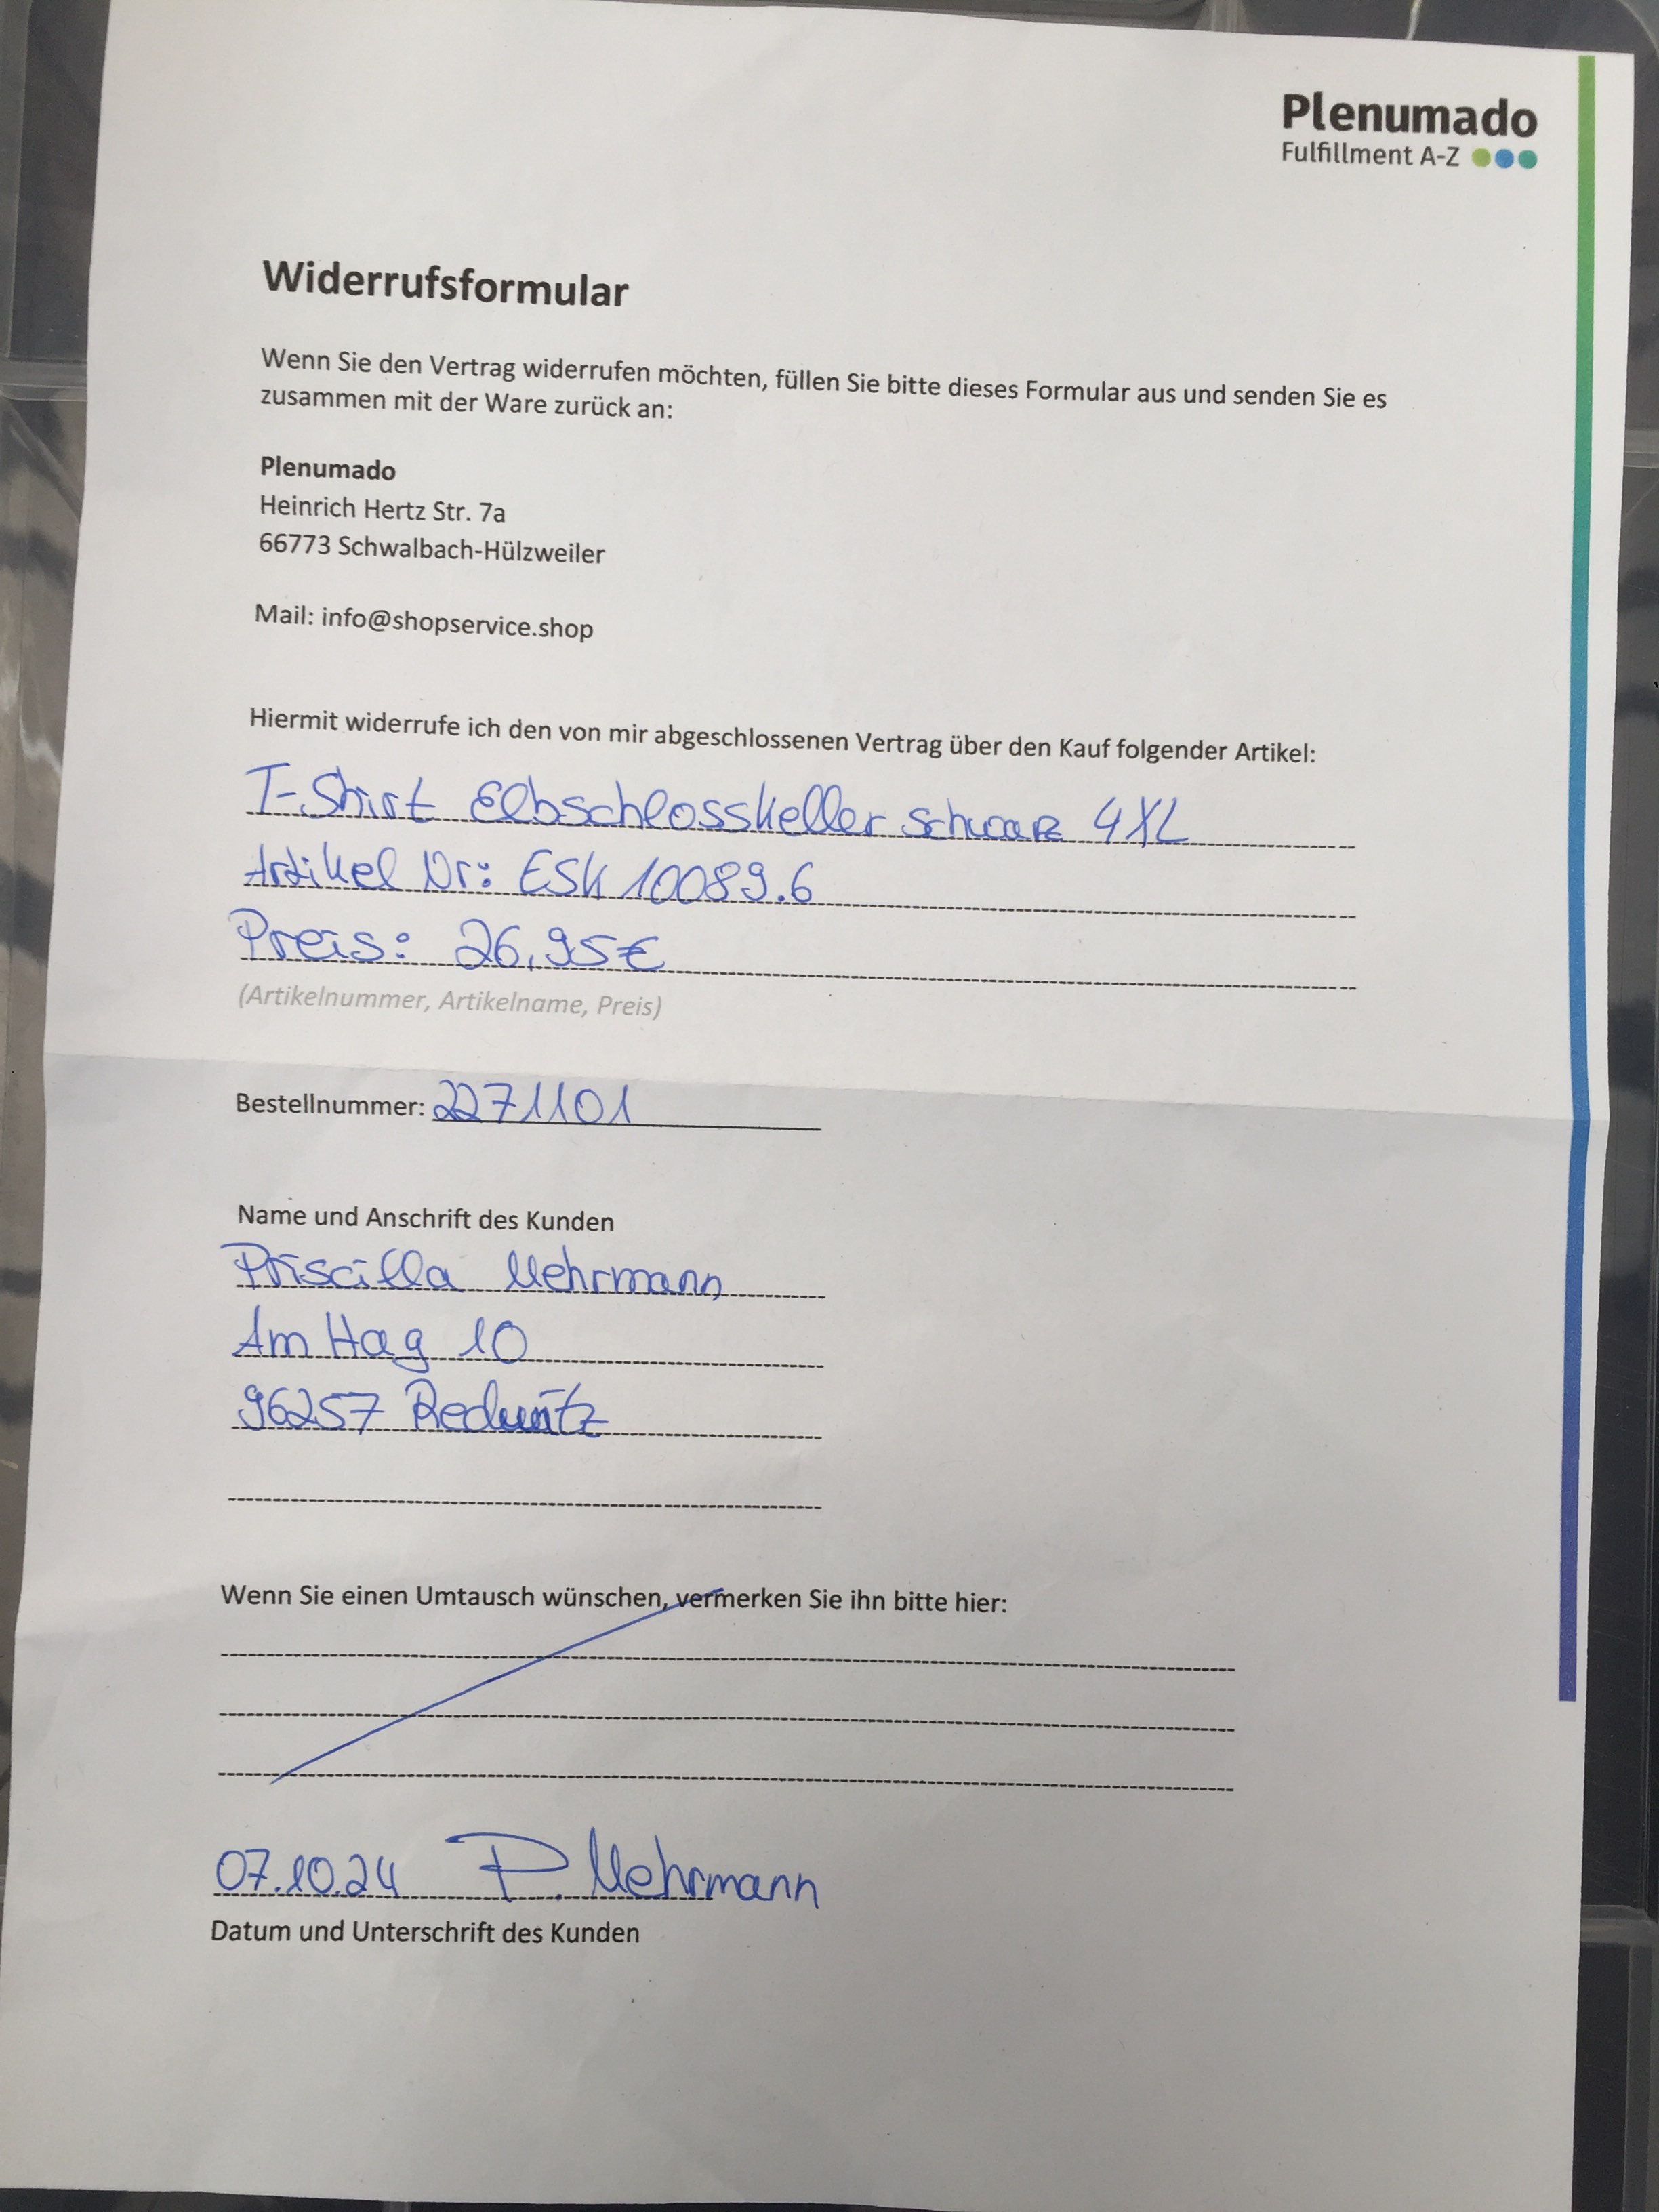 Plenumado
Fulfillment A-Z
Widerrufsformular
Wenn Sie den Vertrag widerrufen möchten, füllen Sie bitte dieses Formular aus und senden Sie es
zusammen mit der Ware zurück an:
Plenumado
Heinrich Hertz Str. 7a
66773 Schwalbach-Hülzweiler
Mail: info@shopservice.shop
Hiermit widerrufe ich den von mir abgeschlossenen Vertrag über den Kauf folgender Artikel:
T-Shirt Elbschlosskeller schwarz 4XL
Artikel Nr: ESK 10089.6
Preis: 26,95€
(Artikelnummer, Artikelname, Preis)
Bestellnummer: 2271101
Name und Anschrift des Kunden
Priscilla Mehrmann
Am Hag 10
96257 Redwitz
Wenn Sie einen Umtausch wünschen, vermerken Sie ihn bitte hier:
07.10.24 P. Mehrmann
Datum und Unterschrift des Kunden